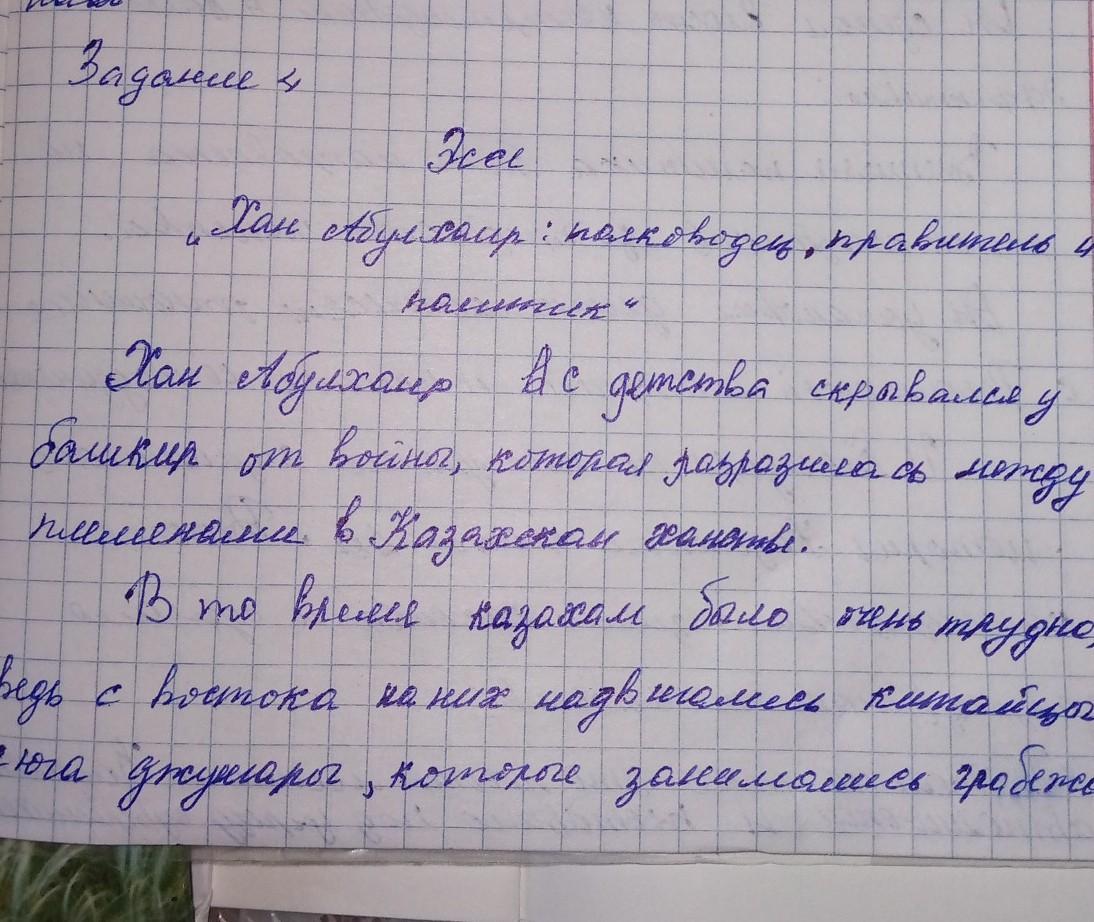 Задание 4
Эссе
„Хан Абулхаир: полководец, правитель и
политик“
Хан Абулхаир с детства скрывался у
башкир от войны, которая разразилась между
племенами в Казахском ханстве.
В то время казахам было очень трудно,
ведь с востока на них надвигались китайцы
с юга джунгары, которые занимались грабежо